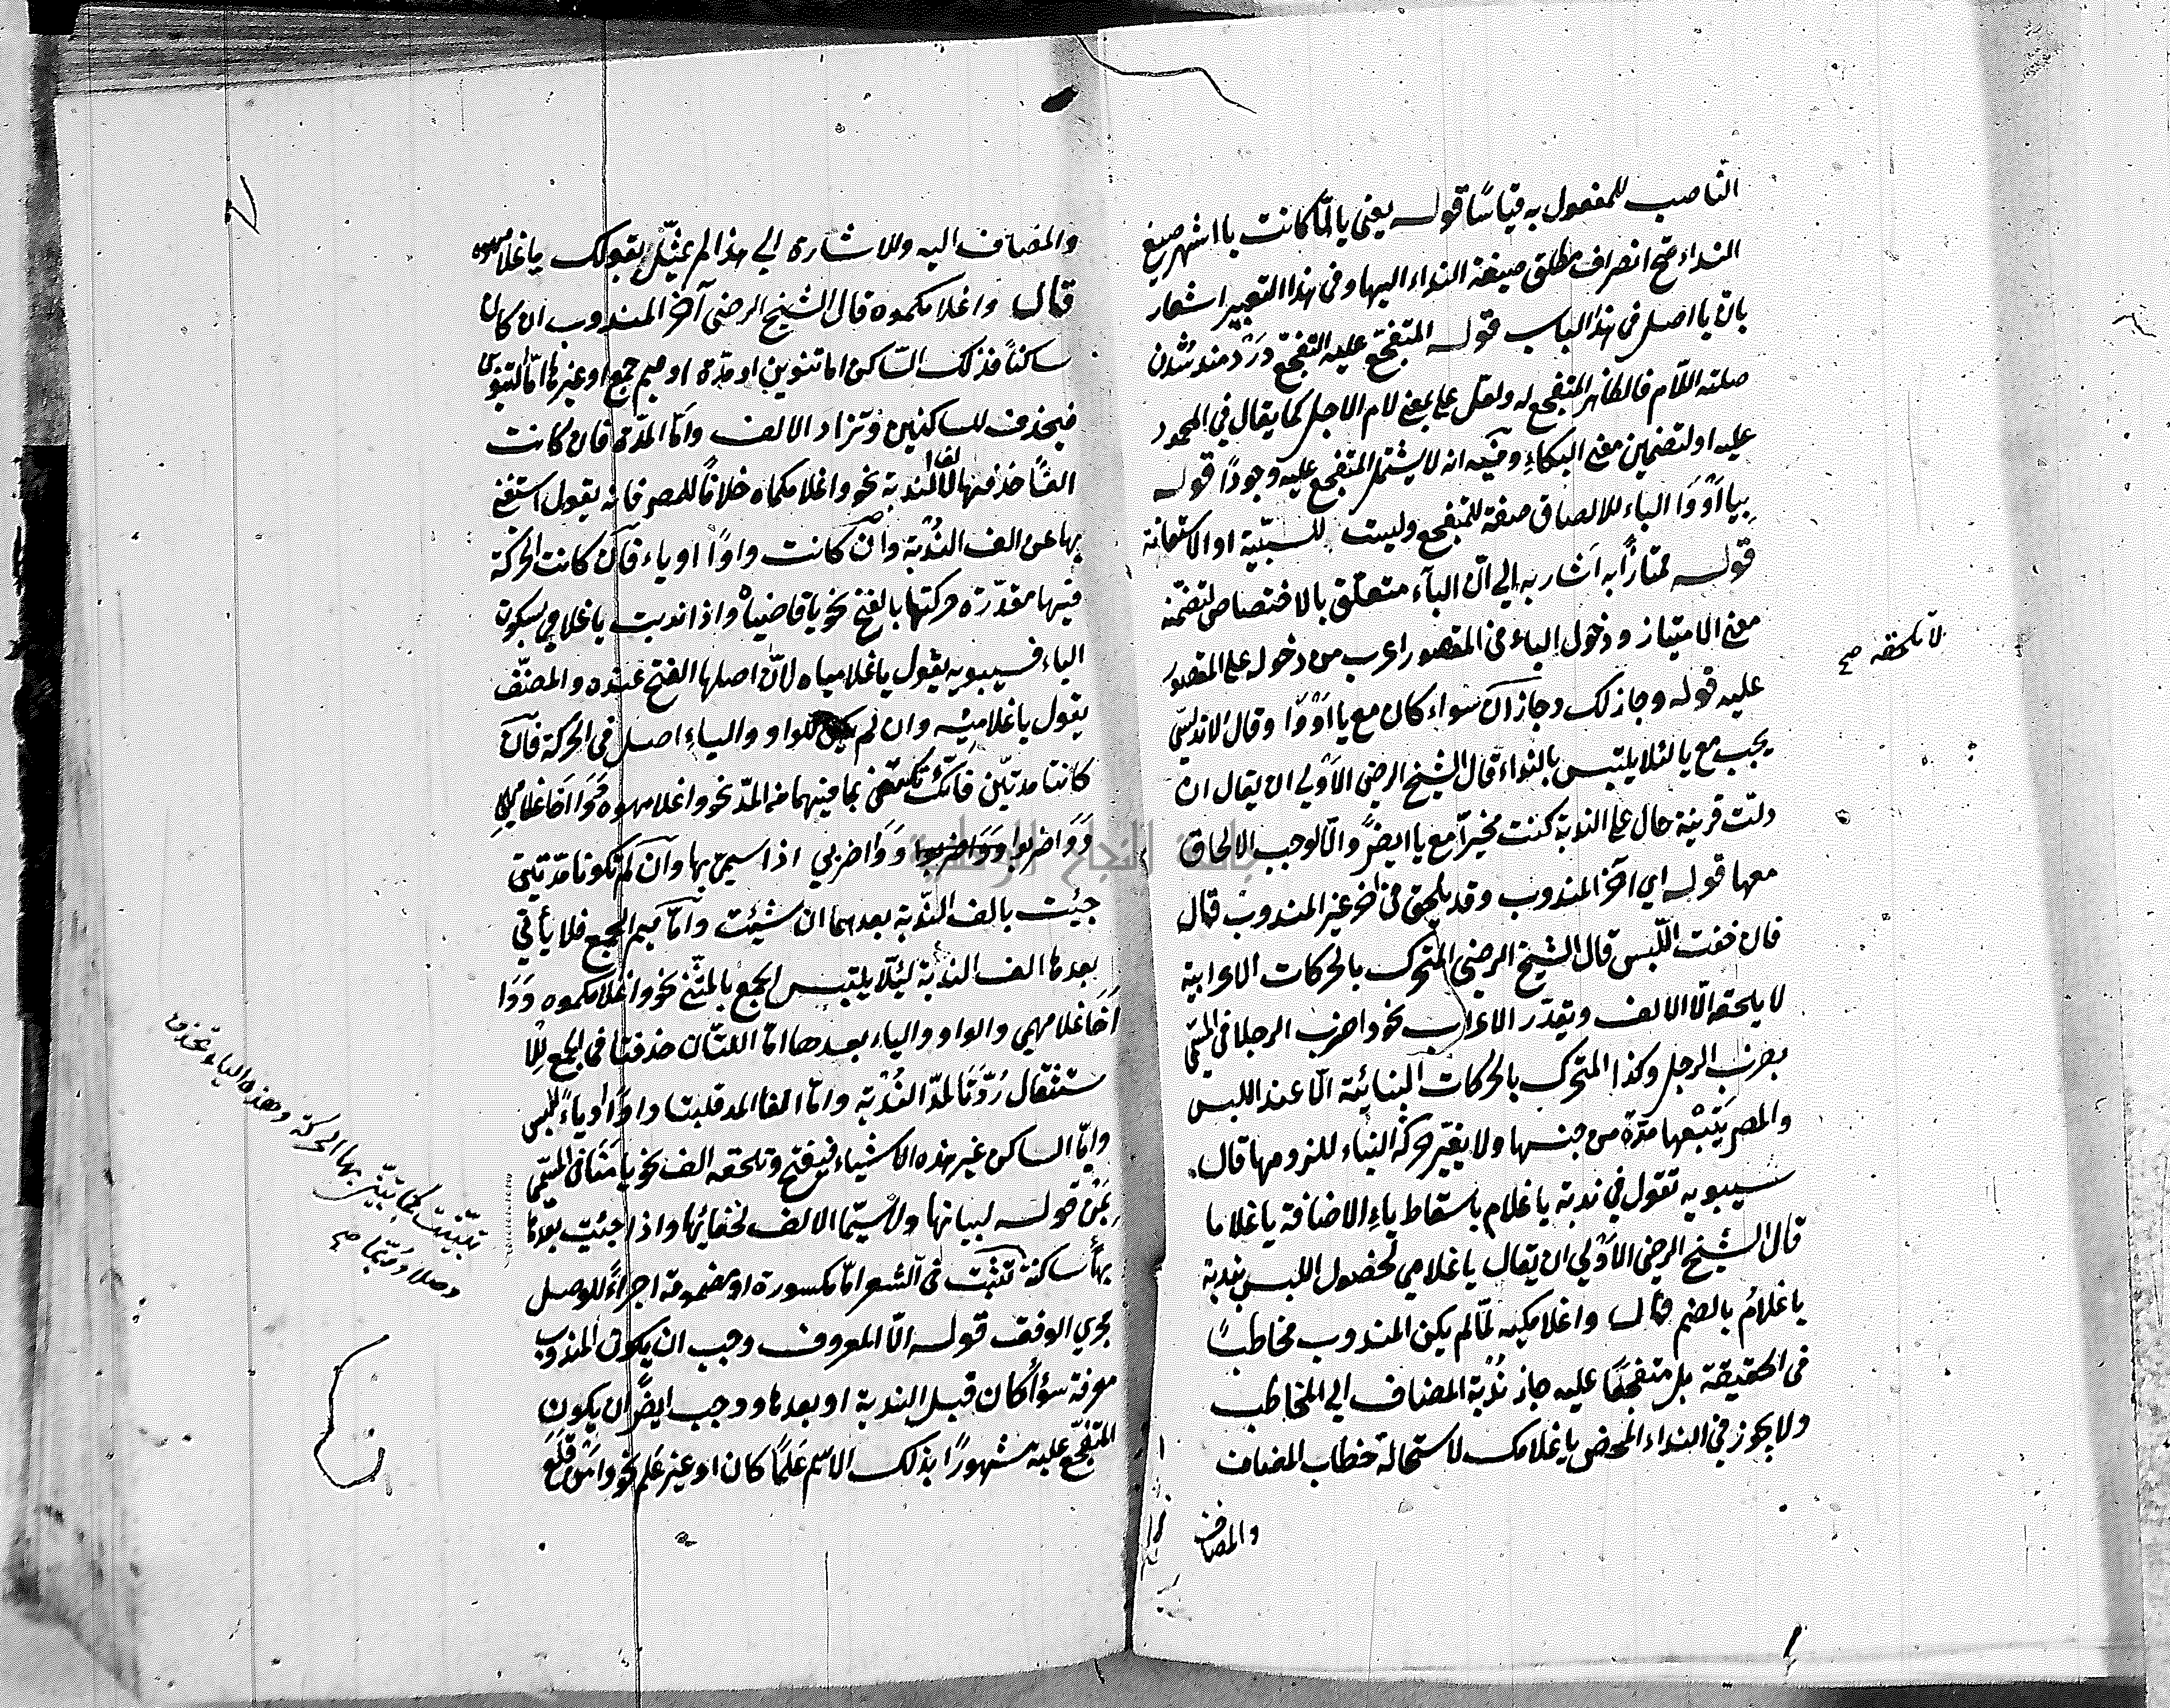 الناصب للمفعول به قياسًا قوله يعني يا لمّا كانت يا اشهر صيغ
النداء صحّ انصراف مطلق صيغة النداء اليها وفي هذا التعبير اشعار
بانّ يا اصل في هذا الباب قوله المتفجّع عليه التفجّع دردمند شدن
صلته اللّام فالظاهر المتفجع له ولعلّ على بمعنى لام الاجل كما يقال في المحمود
عليه او لتضمين معنى البكاء وفيه انه لا يشتمل المتفجع عليه وجودًا قوله
بيا اَوْ وَا الباء للالصاق صفة للمتفجع وليست للسببيّة او الاستعانة
قوله ممتازًا به اشار به الي انّ الباء متعلّق بالاختصاص لتضمّنه
معنى الامتياز ودخول الباء في المقصور اعرب من دخوله على المقصور
عليه قوله وجاز لك وجاز آن سواء كان مع يا اَوْ وَا وقال الاندلسيّ
يجب مع يا لئلا يلتبس بالنداء قال الشيخ الرضي الاَوْلي ان يقال ان
دلّت قرينة حال على الندبة كنت مخيرًا مع يا ايضًا والّا لوجب الالحاق
معها قوله اي اخر المندوب وقد يلحق في اخر غير المندوب قال
فان خفت اللّبس قال الشيخ الرضي المتحرّك بالحركات الاعرابية
لا يلحقه الّا الالف ويقدّر الاعراب نحو واضرب الرجلا في المسمّى
بضرب الرجل وكذا المتحرك بالحركات البنائيّة الّا عند اللبس
والمصر يَتْبعها مدّة من جنسها ولا يغيّر حركة البناء للزومها قال
سيبويه تقول في ندبة يا غلام باسقاط ياء الاضافة يا غلاما
قال الشيخ الرضي الاَوْلي ان يقال يا غلامي لحصول اللبس بندبة
يا غلامُ بالضم قال واغلامكيه لمّا لم يكن المندوب مخاطبًا
في الحقيقة بل متفجعًا عليه جاز نُدْبة المضاف الي المخاطب
ولا يجوز في النداء المحض يا غلامك لاستحالة خطاب المضاف
والمضاف
لا تلحقه صح
والمضاف اليه وللاشارة الي هذا لم يمثّل بقولك يا غلامـ
قال واغلامكموه قال الشيخ الرضي آخر المندوب ان كان
ساكنًا فذلك السّاكن اما تنوين او مدّة او ميم جمع او غيرها امّا التنوين
فيحذف للساكنين وتزاد الالف وامّا المدّة فان كانت
الفًا حذفتها لالف الندبة نحو واغلامكماه خلافًا للمصر فانه يقول استغنى
بها عن الف النُدْبة وان كانت واوًا او ياء فان كانت الحركة
فيها مقدّرة حركتها بالفتح نحو يا قاضياهْ واذا ندبت يا غلامي بسكون
الياء فسيبويه يقول يا غلامياه لانّ اصلها الفتح عنده والمصنّف
يقول يا غلاميْه وان لم يكن للواو والياء اصل في الحركة فان
كانتا مدتيّن فانك تكتفي بما فيهما من المدّ نحو واغلامهوه وَوَا اخا غلامهيه
وَوَا ضربوا وَوَا ضربي اذا سمّي بها وان لم تكونا مدّتين
جئت بالف النّدبة بعدهما ان شئت وامّا ميم الجمع فلا يأتي
بعدها الف الندبة لئلّا يلتبس الجمع بالمثّنى نحو واغلامكموه وَوَا
اَخَا غلامهمي والواو والياء بعدها امّا اللتان حذفتا في الجمع للا
ستثقال رُدّتَا لمدّ النُدْبة وامّا الفا المد قلبتا واوًا او ياءً للبس
وامّا الساكن غير هذه الاشياء فيفتح وتلحقه الف نحو يا مَنَا في المسمّى
بمَنْ قوله لبيانها ولا سيّما الالف لخفائها واذا جئت بعدها
بهاء ساكنة تثبت في الشعر امّا مكسورة او مضمومة اجراءً للوصل
مجري الوقف قوله الّا المعروف وجب ان يكون المندوب
معرفة سوأ كان قبل الندبة او بعدها ووجب ايضًا ان يكون
المتفجّع عليه مشهورًا بذلك الاسم عَلَمًا كان او غير عَلم نحو وا مَنْ قَلَعَ
تبيّنت كما تبيّن بها الحركة وهذه الياء تحذف
وصلا وربّما صح